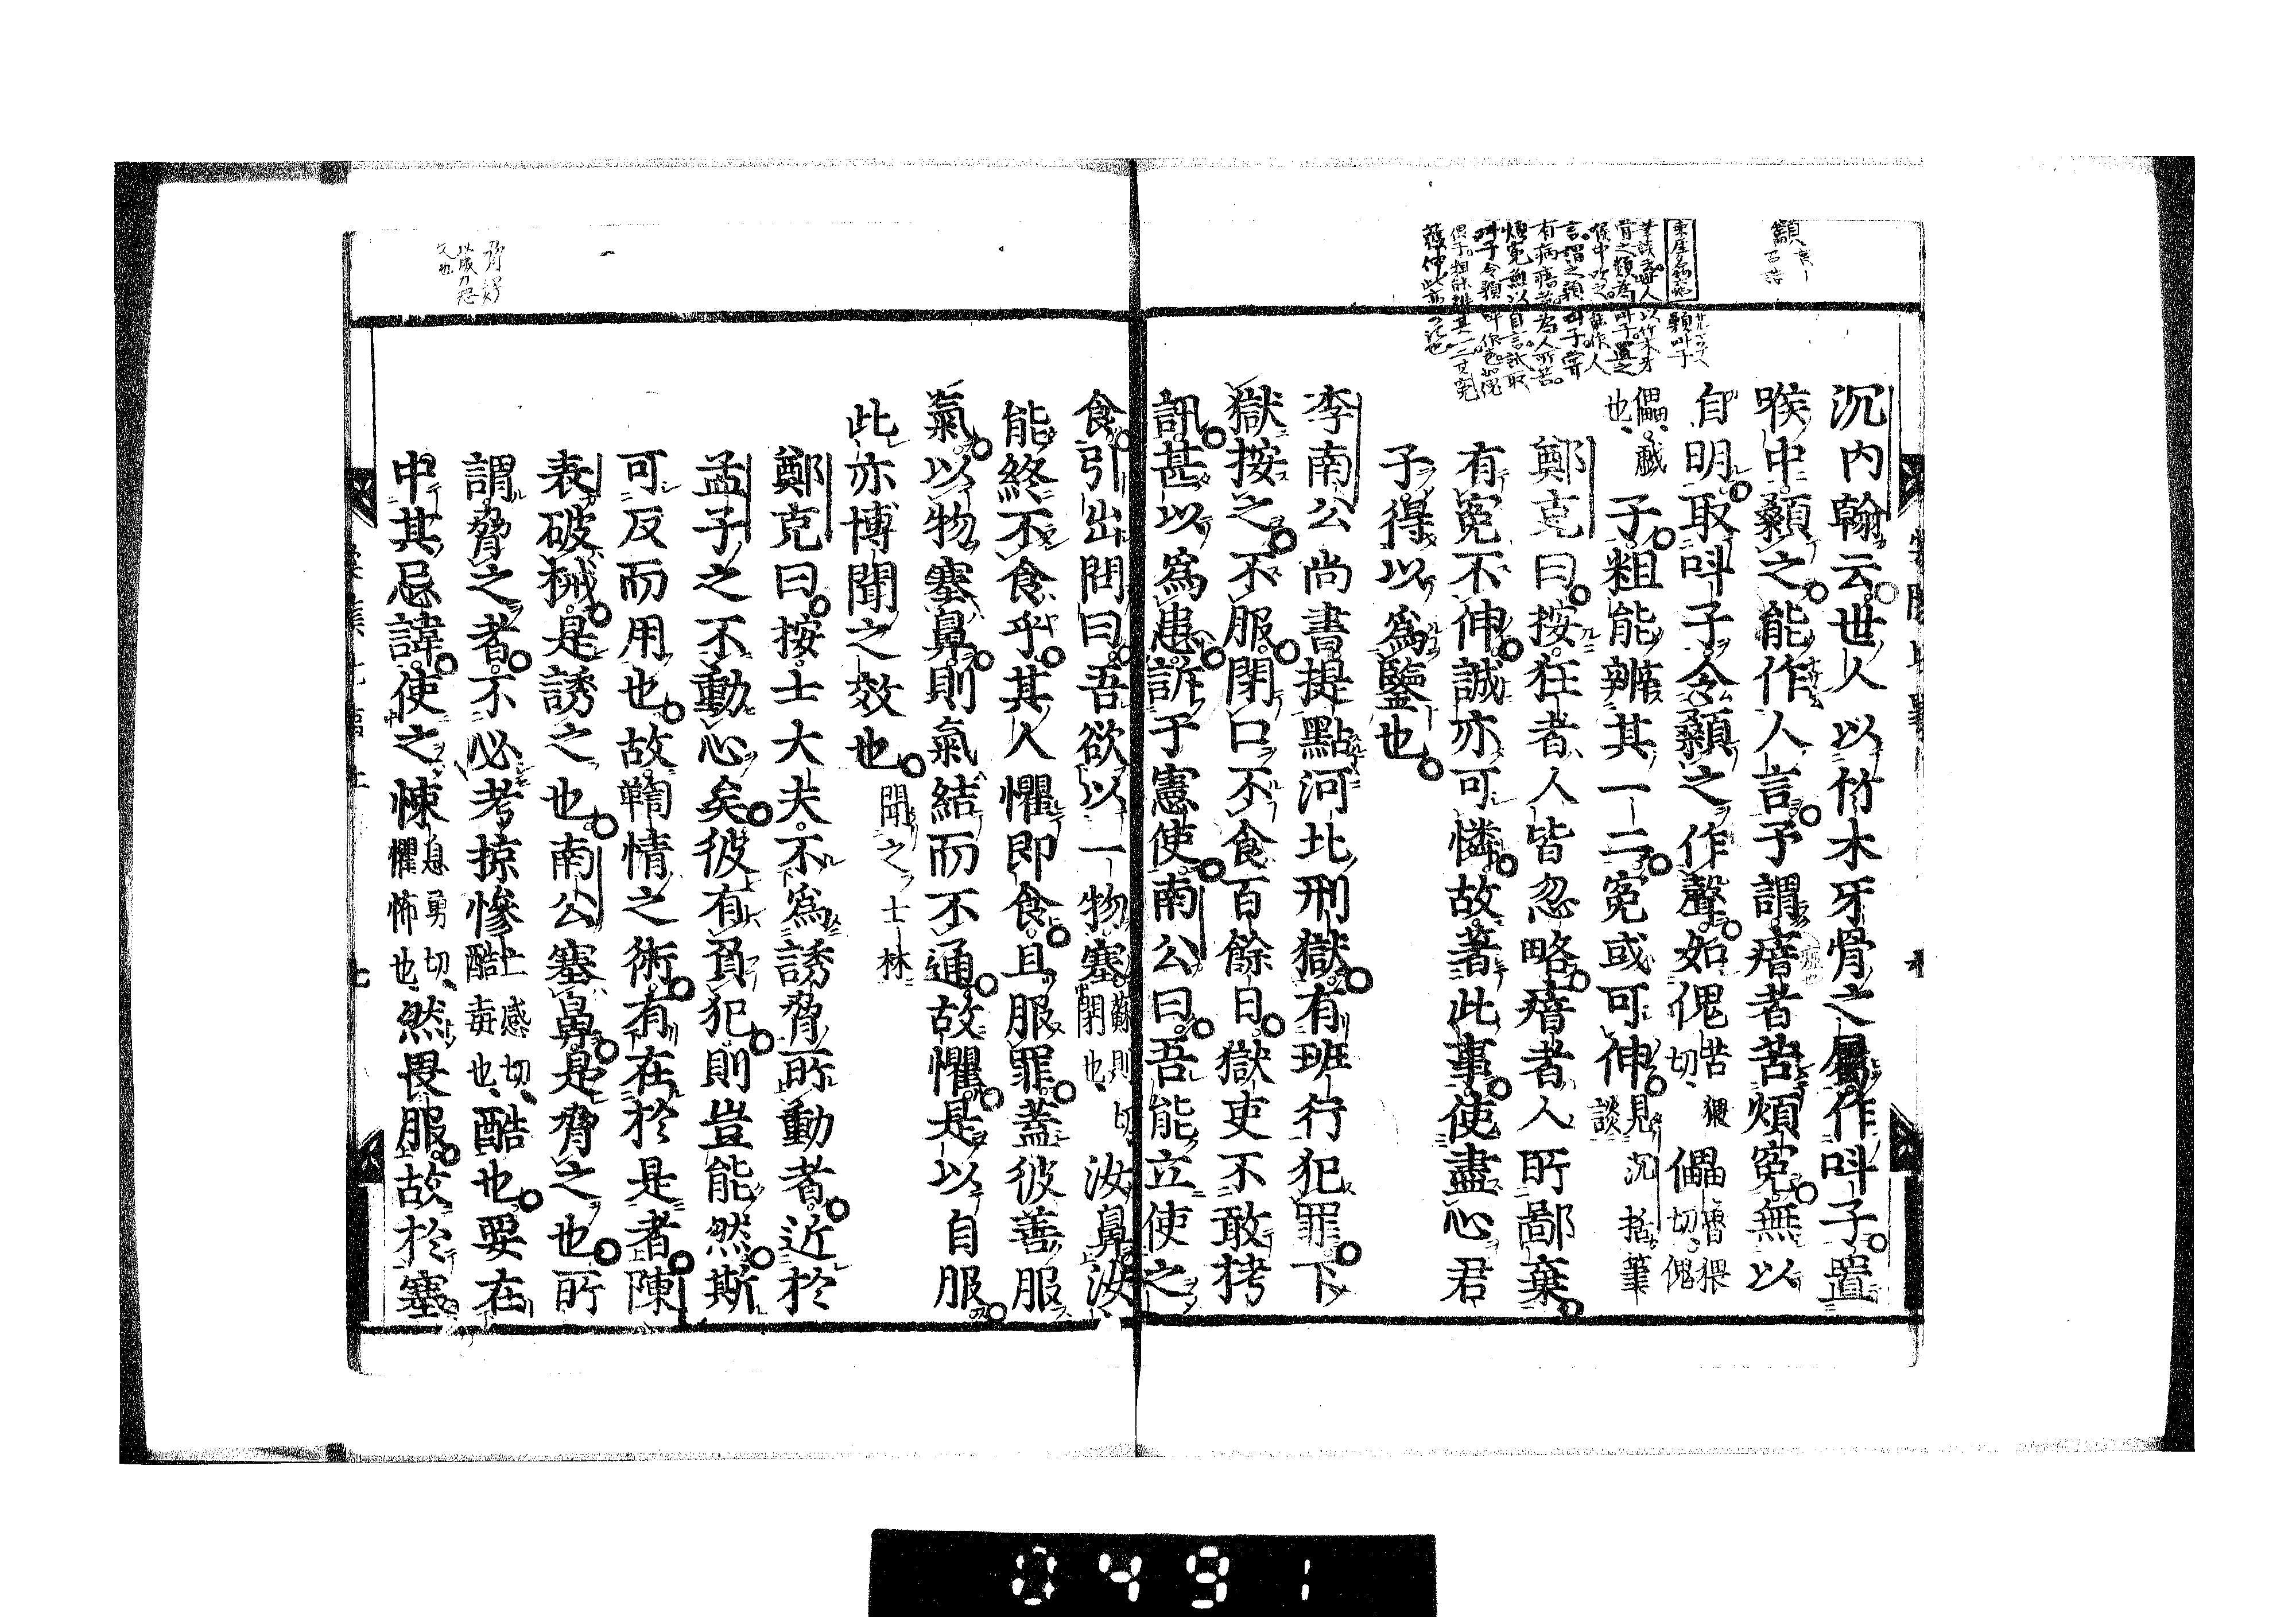 沉内翰云世人以竹木牙骨之屬作叫子置
喉中顙之能作人言予謂瘖者苦煩冤無以
自明取叫子令顙之作聲如傀苦猥切儡魯猥切傀
儡戱也子粗能辨其一二冤或可伸見沉括筆談
鄭克曰按狂者人皆忽略瘖者人所鄙棄
有冤不伸誠亦可憐故著此事使盡心君
子得以為鑒也
李南公尚書提點河北刑獄有班行犯罪下
獄按之不服閉口不食百餘日獄吏不敢拷
訊甚以為患訴于憲使南公曰吾能立使之
食引出問曰吾欲以一物塞蘇則切閉也汝鼻汝
能終不食乎其人懼即食且服罪蓋彼善服
氣以物塞鼻則氣結而不通故懼是以自服
此亦博聞之效也聞之士林
鄭克曰按士大夫不為誘脅所動者近於
孟子之不動心矣彼有負犯則豈能然斯
可反而用也故鞫情之術有在於是者陳
表破械是誘之也南公塞鼻是脅之也所
謂脅之者不必考掠慘七感切酷毒也酷也要在
中其忌諱使之悚息勇切懼怖也然畏服故於塞
0491